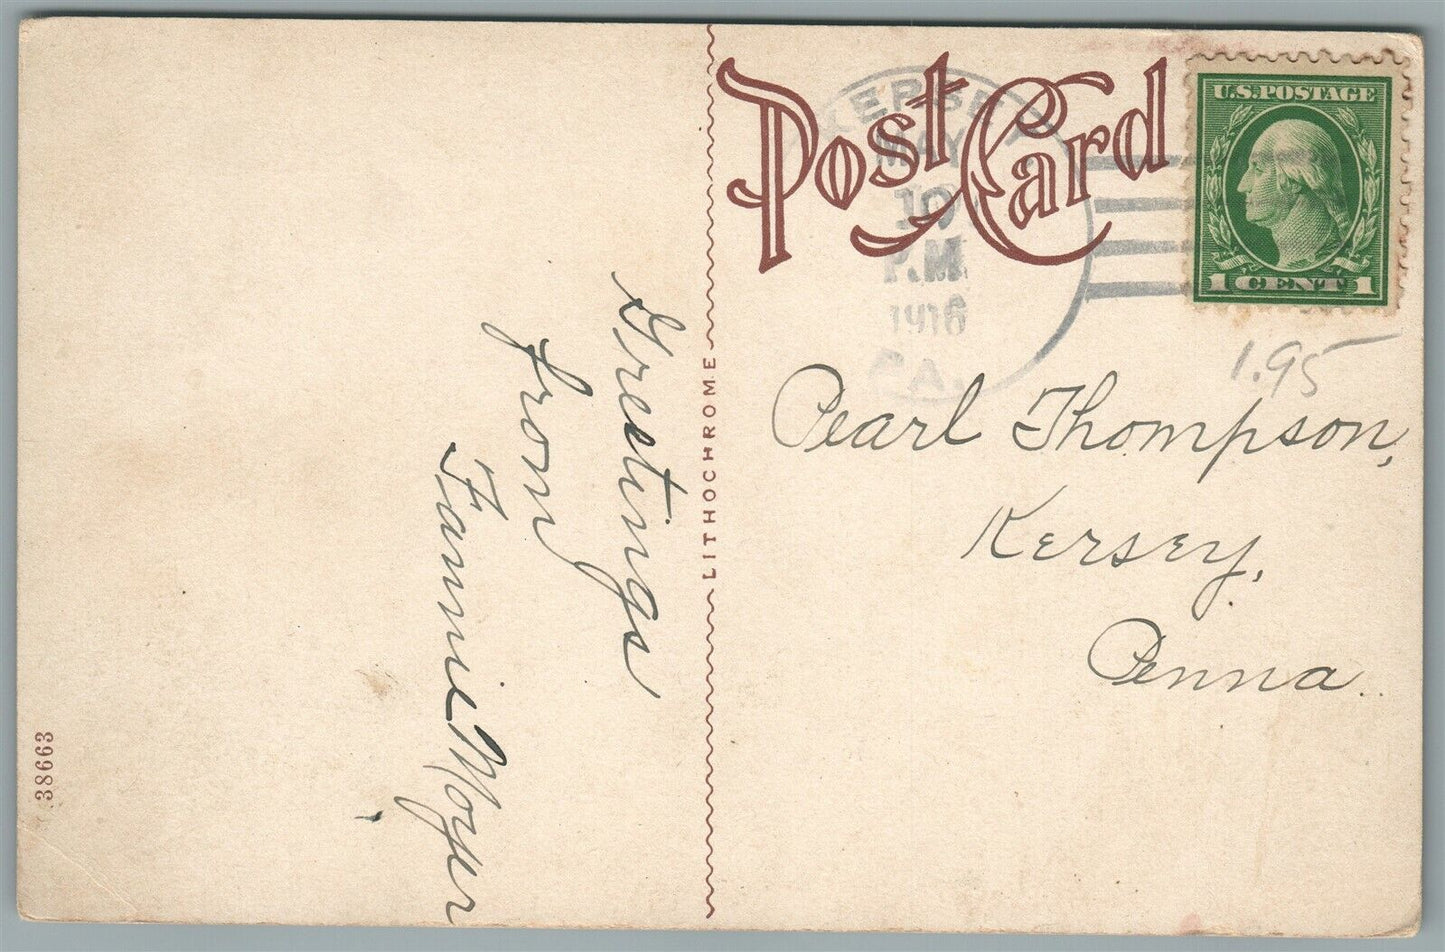 Post Card
KERSEY
MAY
10
P.M.
1916
PA.
U.S. POSTAGE
1 CENT 1
1.95
Pearl Thompson,
Kersey,
Penna.
Greetings
from
Fannie Moyer
LITHOCHROME
38663